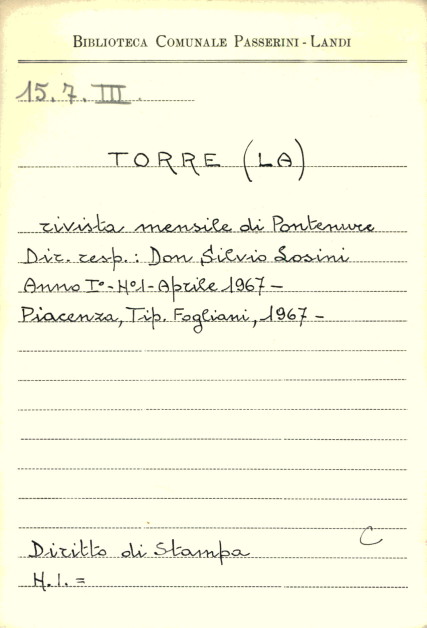 BIBLIOTECA COMUNALE PASSERINI - LANDI
15.7.III.
TORRE (LA)
rivista mensile di Pontenure
Dir. resp.: Don Silvio Losini
Anno I° - N° 1 - Aprile 1967 -
Piacenza, Tip. Fogliani, 1967 -
C
Diritto di Stampa
N. I. =